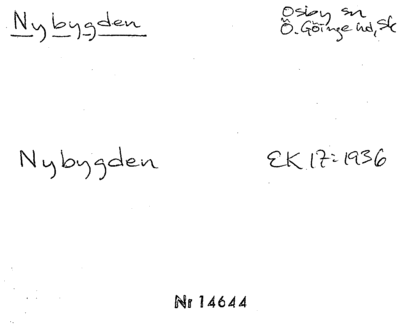 Nybygden
Osby sn
Ö. Göinge hd, Sk
Nybygden
EK 17:1936
Nr 14644